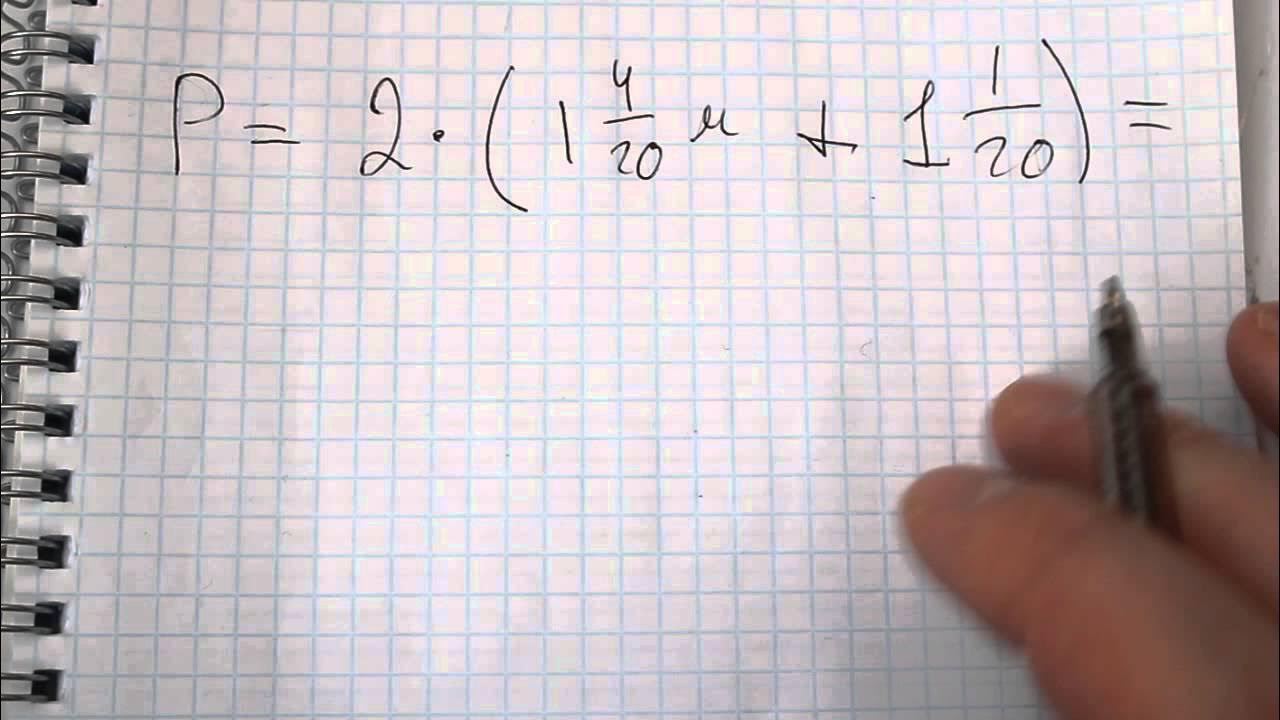 P = 2 · (1 4/20 м + 1 1/20) =